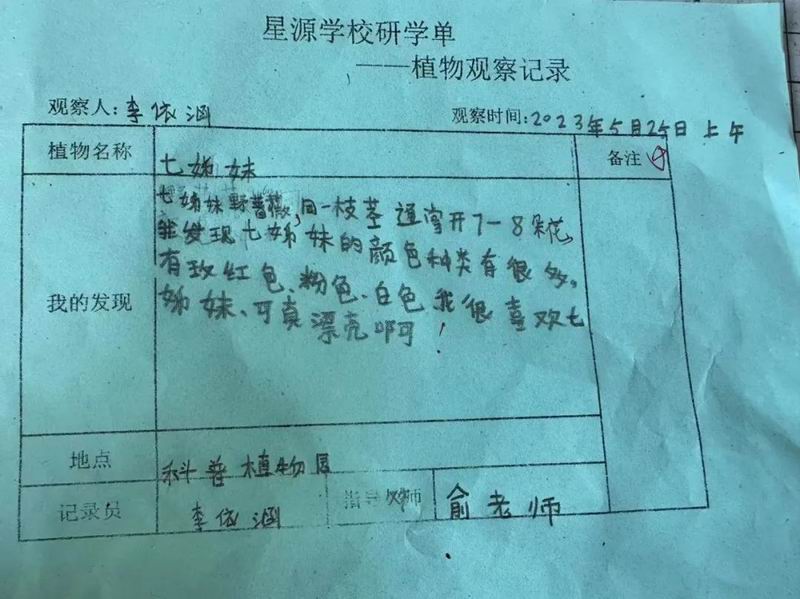 星源学校研学单
——植物观察记录
观察人:李依涵
观察时间:2023年5月25日上午
植物名称
七姊妹
备注
我的发现
七姊妹野蔷薇,同一枝茎 通常开7-8朵花,
我发现七姊妹的颜色种类有很多。
有玫红色、粉色、白色我很喜欢七
姊妹、可真漂亮啊
地点
科普植物园
记录员
李依涵
指导教师
俞老师